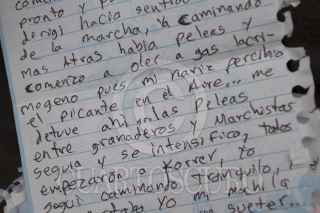 pronto y
dirigí hacia sentido
de la marcha, Ya caminando
mas Atras habia Peleas y
comenzo a oler a gas lacri-
mogeno pues mi nariz percibio
el picante en el Aire... me
detuve ahi en las Peleas
entre granaderos y Marchistas
seguia y se intensifico, todos
empezaron a Korrer, Yo
segui caminando tranquilo,
Yo mi mochila
sueter...